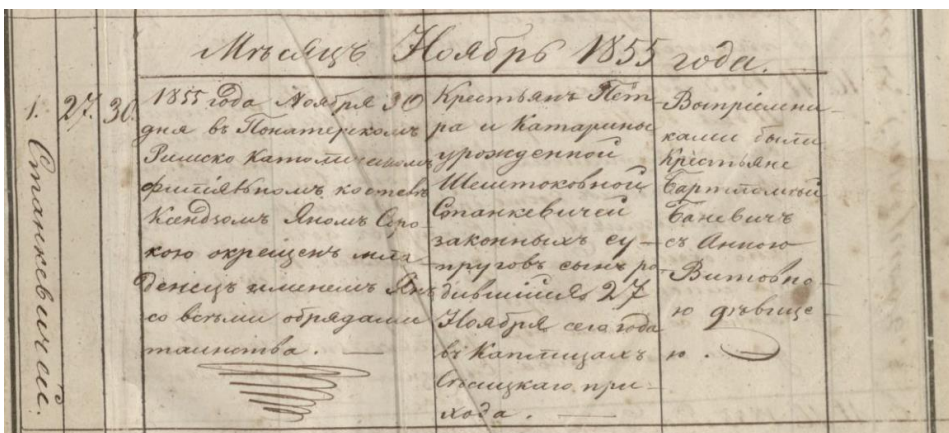 Мѣсяцъ Ноябрь 1855 года.
1. 27. 30.
Станкевичей.
1855 года Ноября 30
дня въ Понатерскомъ
Римско Католическомъ
филіяльномъ костелѣ
Ксендзомъ Яномъ Соро-
кою окрещенъ мла-
денецъ именемъ Янъ
со всѣми обрядами
таинства. —
Крестьянъ Пет-
ра и Катарины
урожденной
Шештоковной
Станкевичей
законныхъ су-
пруговъ сынъ ро-
дившійся 27
Ноября сего года
въ Каплицахъ
приход-
хода. —
Воспріемни-
ками были
Крестьяне
Бартломей
Баневичъ
съ Анною
Витовно-
ю дѣвице-
ю.